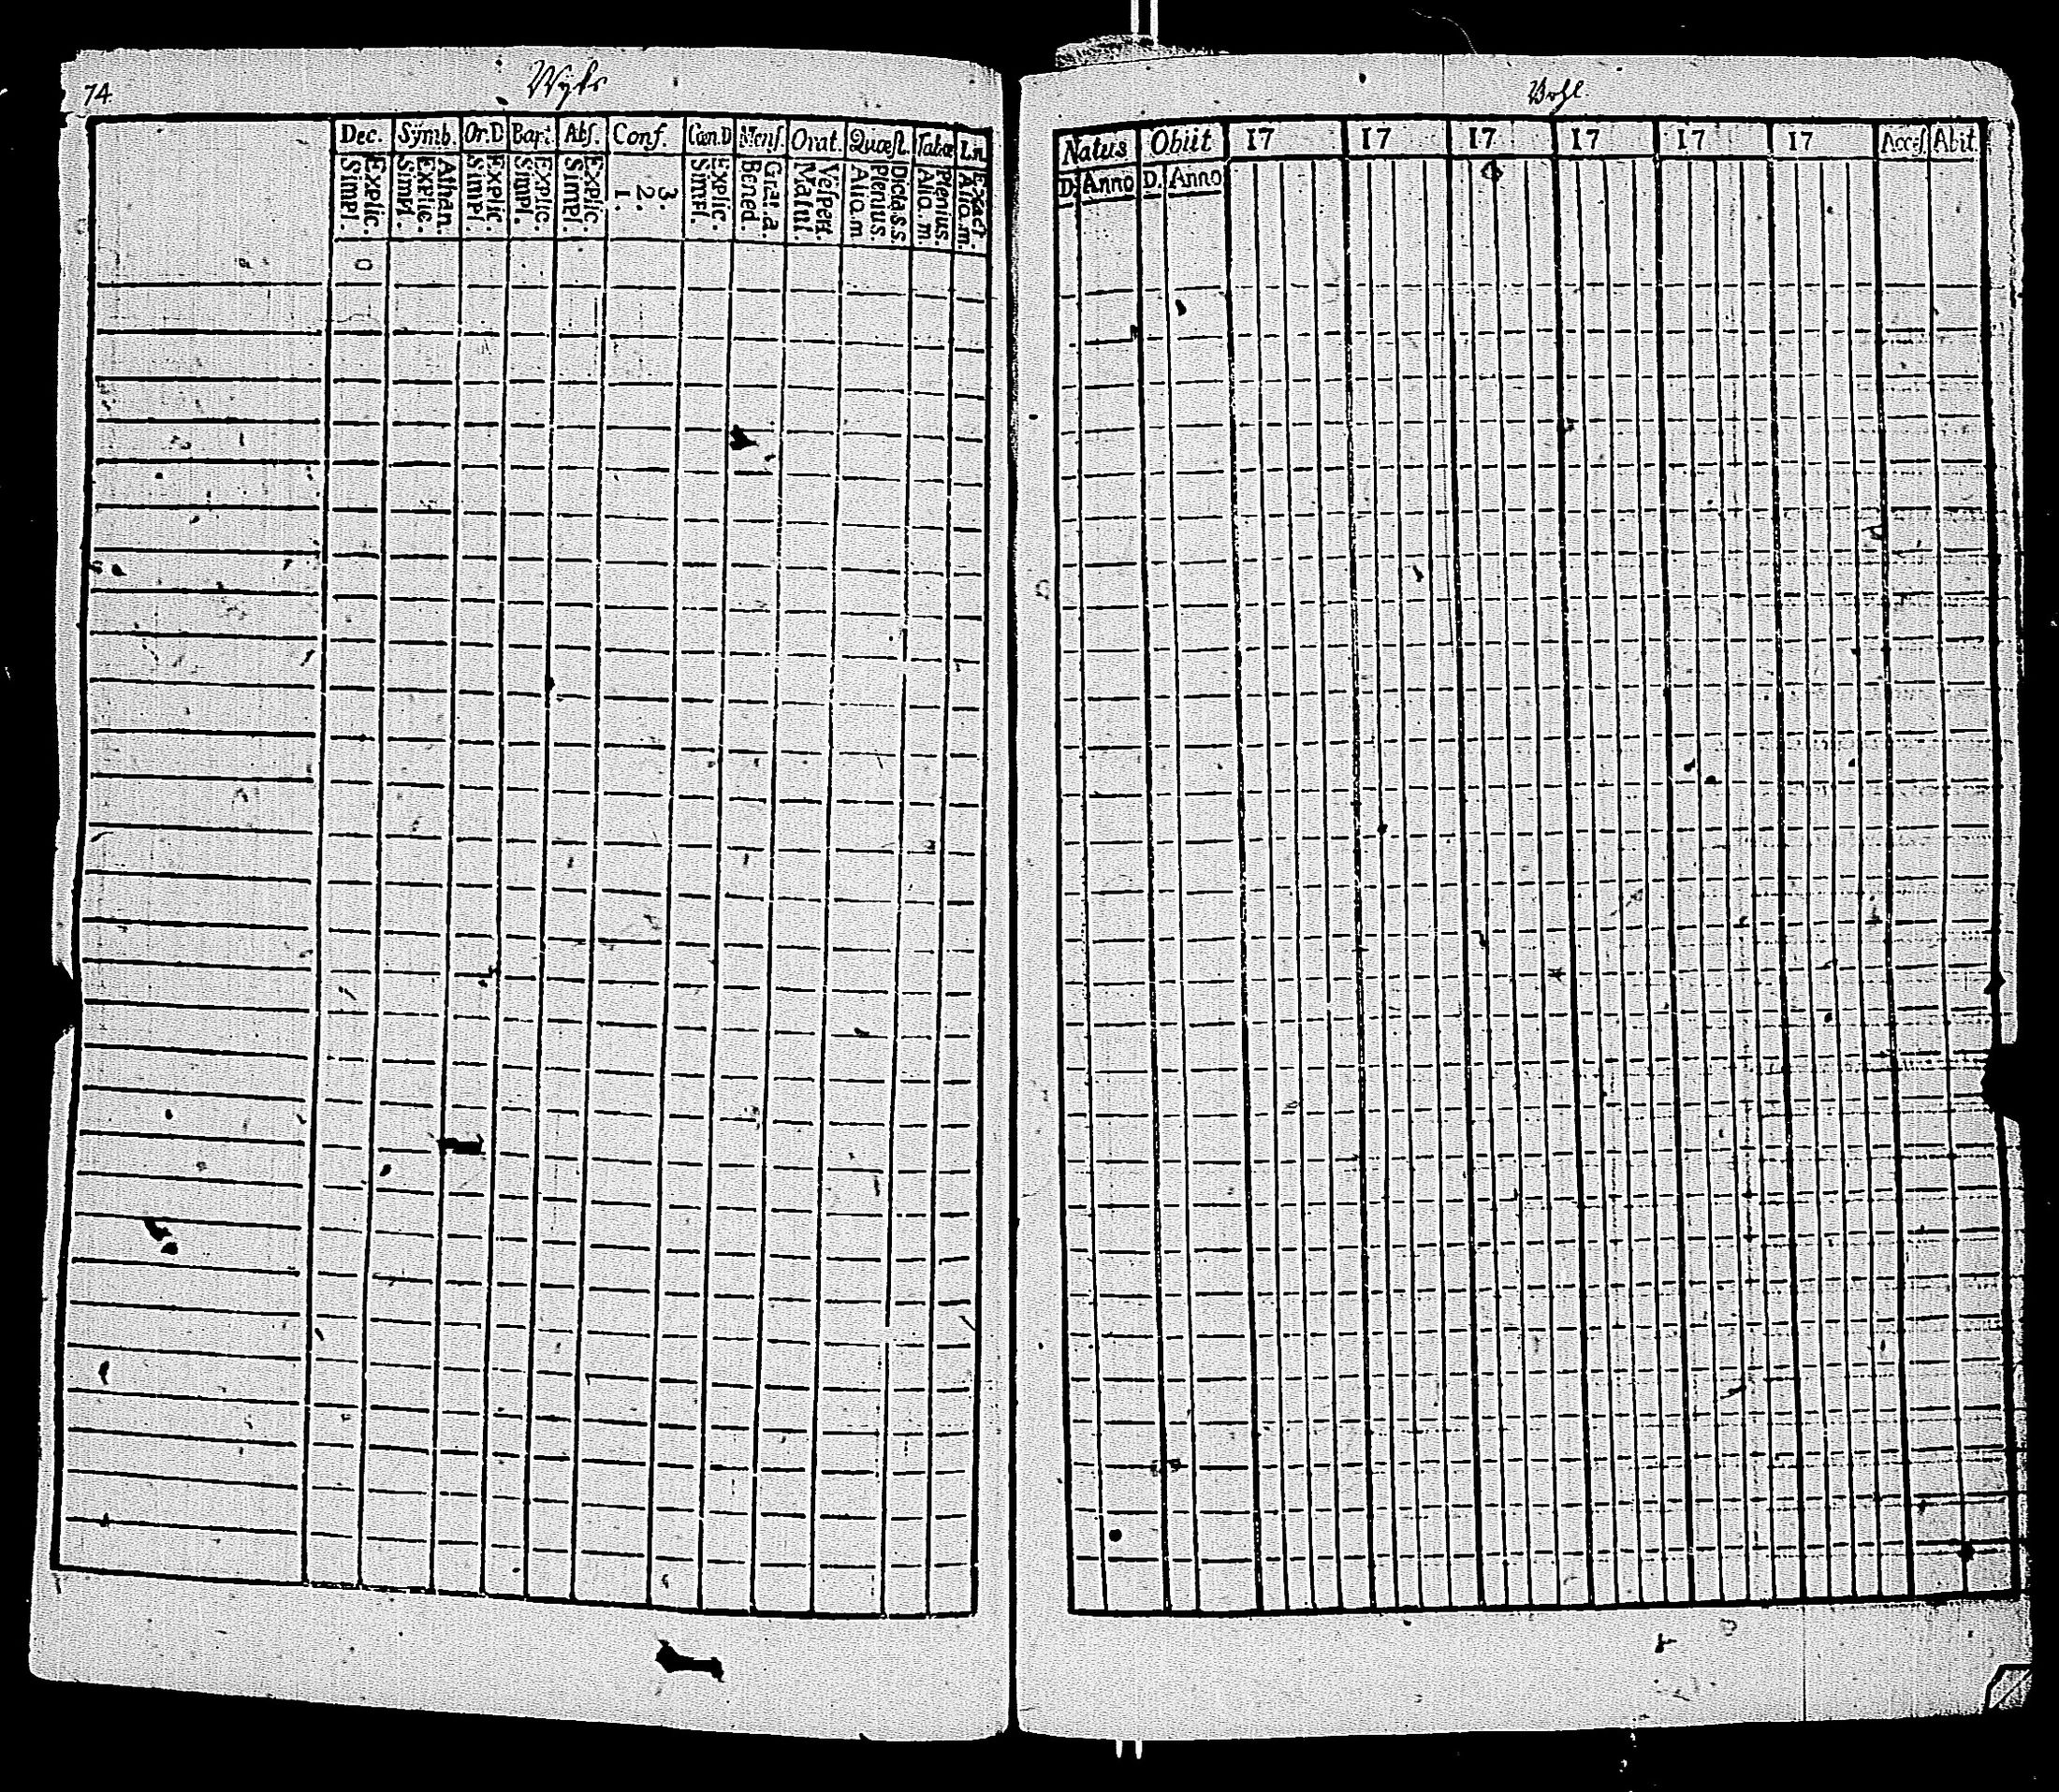 74. Wyks
Dec. Symb. Or.D Bapt. Abs. Conf. Cœn.D Mens. Orat. Quæst. Tabœ
Simpl. Explic. Simpl. Explic. Athan. Simpl. Explic. Simpl. Explic. Simpl. Explic. 1. 2. 3. Simpl. Explic. Bened. Gra.a. Matut. Vesper. Alio.m Plenius. Dicta.s.s. Alio.m. Plenius. Alio.m. Exact.
0
Natus Obiit 17 17 17 17 17 17 Access. Abit.
D. Anno D. Anno